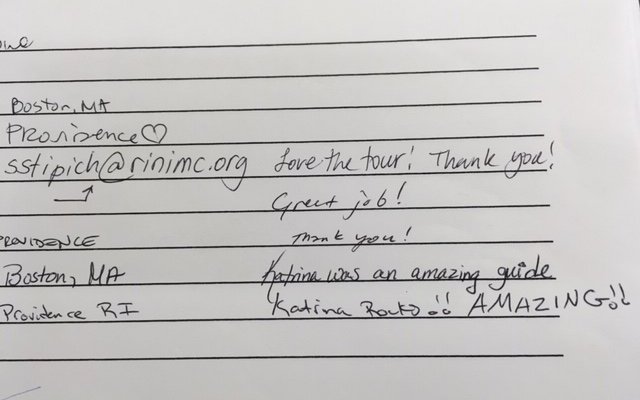 Boston, MA
Providence♡
sstipich@rinimc.org Love the tour! Thank you!
Great job!
PROVIDENCE Thank you!
Boston, MA Katrina was an amazing guide
Providence RI Katina Rocks!! AMAZING!!